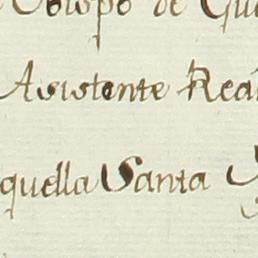 Obispo de
Asistente Real
quella Santa